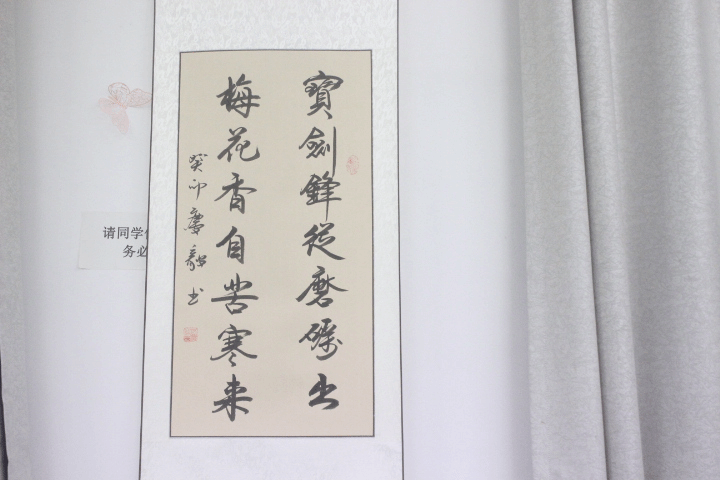 寶劍鋒從磨礪出
梅花香自苦寒来
癸卯慶毅书
请同学
务必